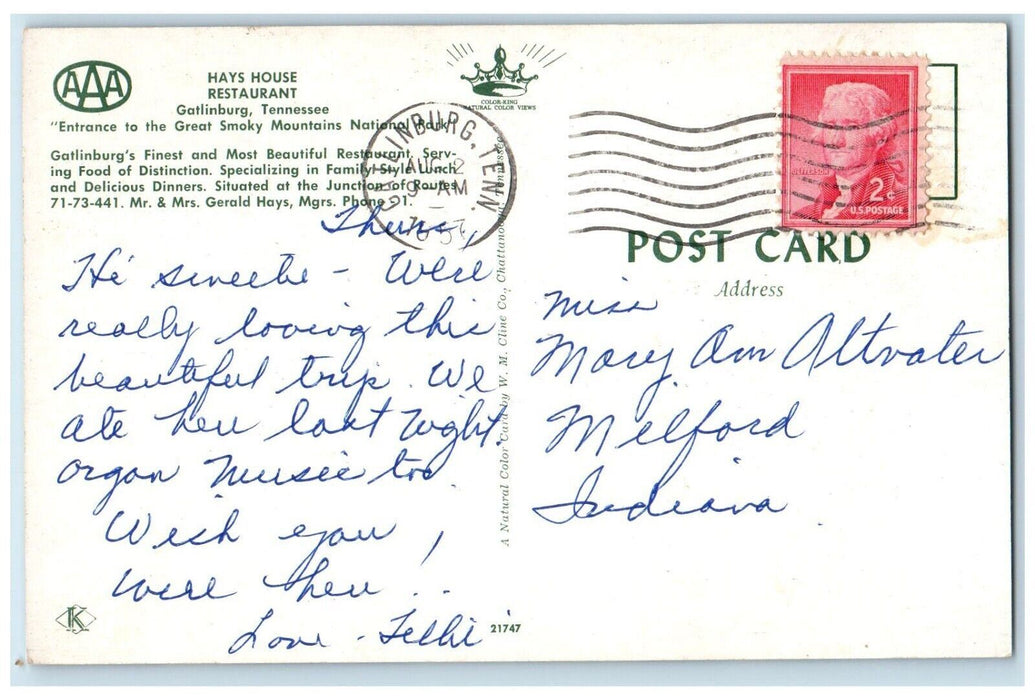 AAA
HAYS HOUSE
RESTAURANT
Gatlinburg, Tennessee
"Entrance to the Great Smoky Mountains National Park"
Gatlinburg's Finest and Most Beautiful Restaurant. Serv-
ing Food of Distinction. Specializing in Family Style Lunch
and Delicious Dinners. Situated at the Junction of Routes
71-73-441. Mr. & Mrs. Gerald Hays, Mgrs. Phone 91.
COLOR-KING
NATURAL COLOR VIEWS
GATLINBURG, TENN.
AUG 2
9 AM
1957
JEFFERSON
2¢
U.S. POSTAGE
POST CARD
Address
Thurs,
Hi sweetie - We're
really loving this
beautiful trip. We
ate here last night.
organ music too.
Wish you
were here!..
Love -
Miss
Mary Ann Altvater
Milford
Indiana
A Natural Color Card by W. M. Cline Co., Chattanooga, Tennessee
K
21747